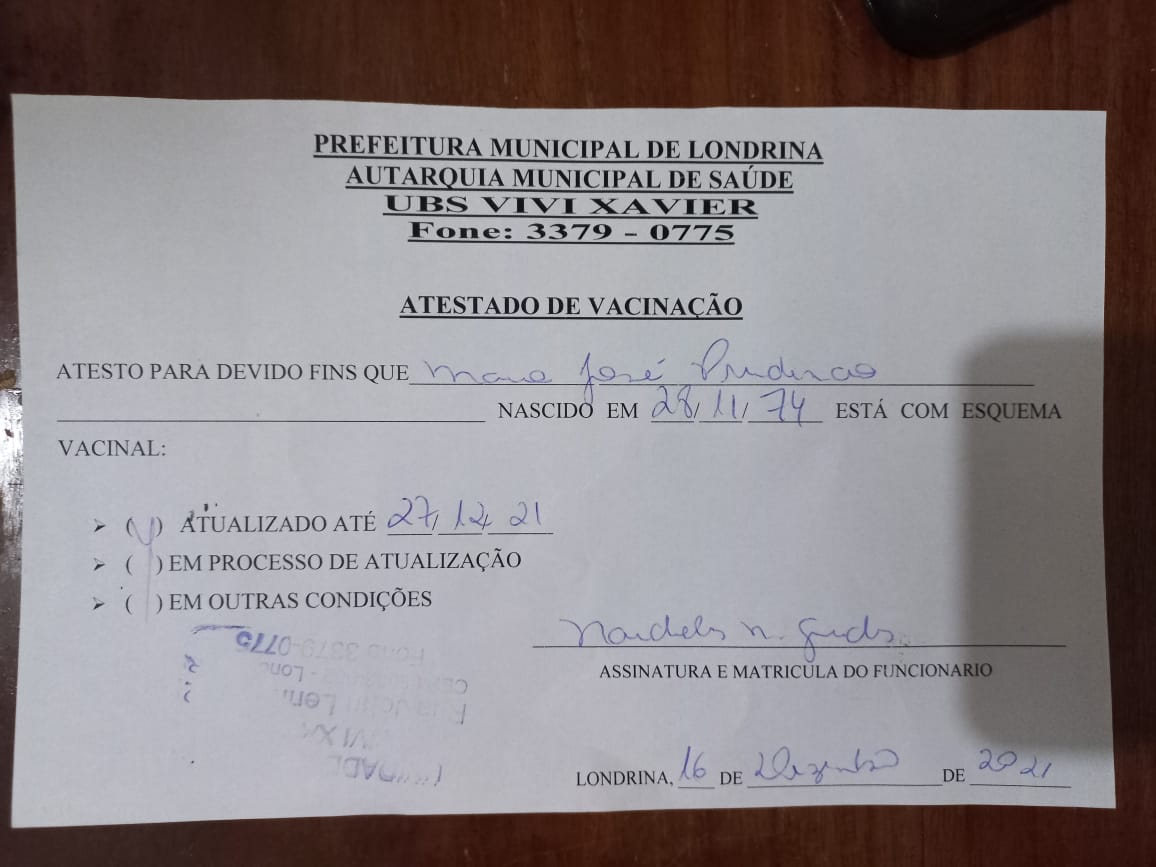 PREFEITURA MUNICIPAL DE LONDRINA
AUTARQUIA MUNICIPAL DE SAÚDE
UBS VIVI XAVIER
Fone: 3379 - 0775
ATESTADO DE VACINAÇÃO
ATESTO PARA DEVIDO FINS QUE José
NASCIDO EM 28/11/74 ESTÁ COM ESQUEMA
VACINAL:
➢ ( ) ATUALIZADO ATÉ 27/12/21
➢ ( ) EM PROCESSO DE ATUALIZAÇÃO
➢ ( ) EM OUTRAS CONDIÇÕES
ASSINATURA E MATRICULA DO FUNCIONARIO
Fone 3379-0775
LONDRINA, 16 DE Dezembro DE 2021